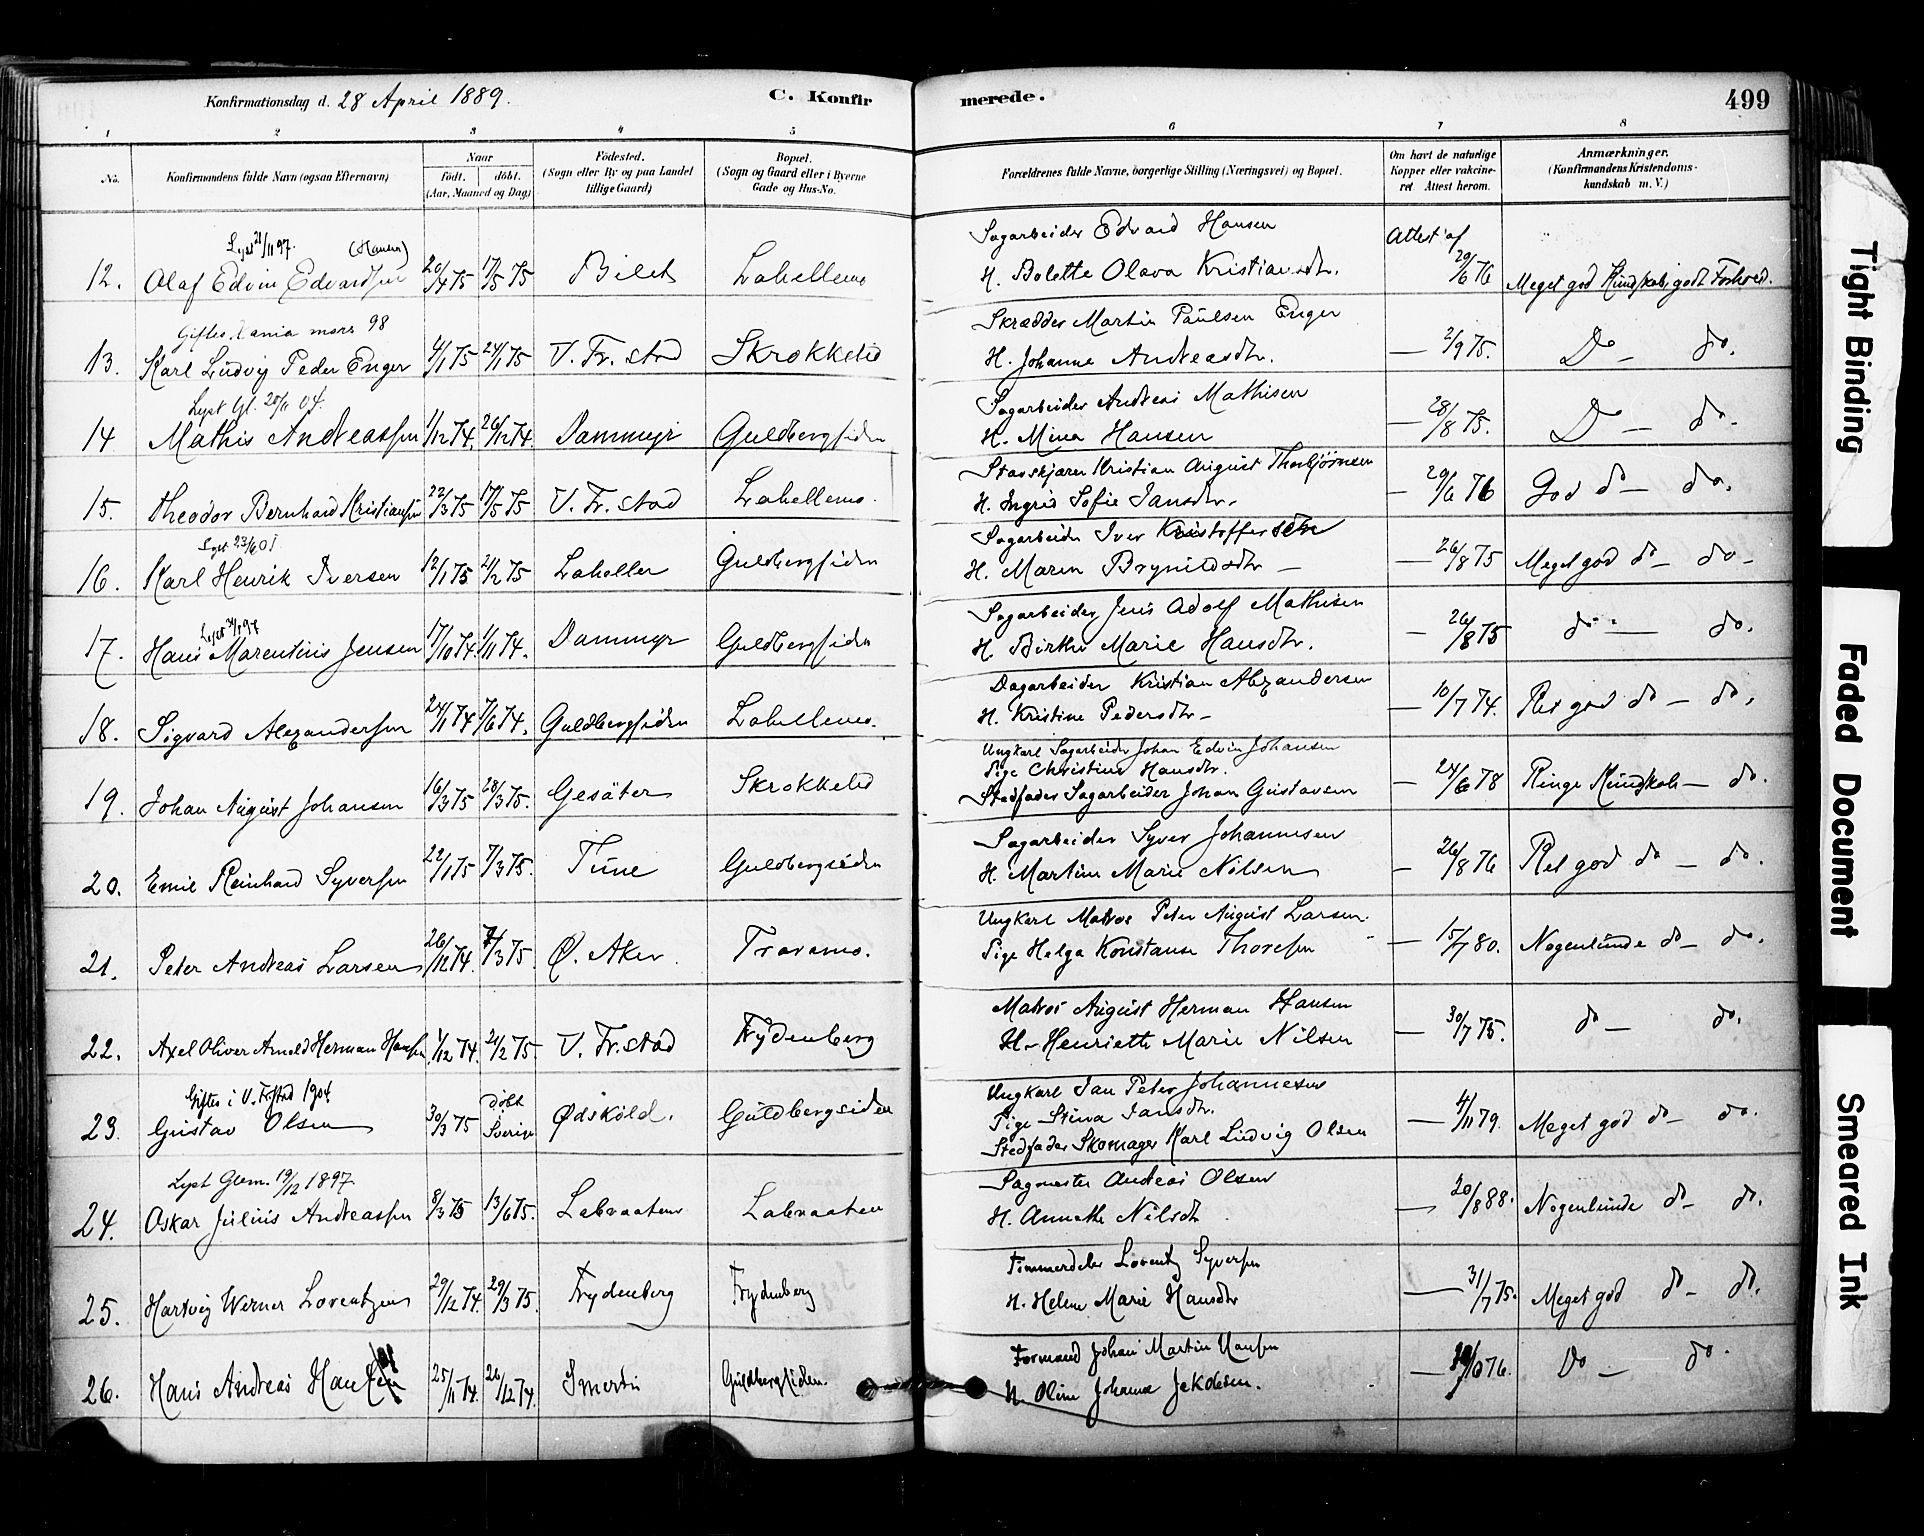 Konfirmationsdag d. 28 April 1889. C. Konfir merede. 499
1 2 3 4 5 6 7 8
No. Konfirmandens fulde Navn (ogsaa Efternavn) Naar født. døbt. (Aar, Maaned og Dag) Fødested. (Sogn eller By og paa Landet tillige Gaard) Bopæl. (Sogn og Gaard eller i Byerne Gade og Hus-No. Forældrenes fulde Navne, borgerlige Stilling (Næringsvei) og Bopæl. Om havt de naturlige Kopper eller vakcineret. Attest herom. Anmærkninger. (Konfirmandens Kristendomskundskab m. V.)
Lyst 21/11 97. (Hansen)
12. Olaf Edvin Edvardsen 20/4 75 17/5 75 Bilet Lahellemo Sagarbeider Edvard Hansen
H. Bolette Olava Kristiansdtr. Attest af 29/6 76 Meget god Kundskab, godt Forhold.
Giftes mars 98
13. Karl Ludvig Peder Enger 4/1 75 24/1 75 V. Fr.stad Skrokkelid Skrædder Martin Paulsen Enger
H. Johanne Andreasdtr. — 2/9 75. Do — do.
Lyst Gl. 20/11 04.
14 Mathis Andreassen 1/12 74. 26/12 74. Dammyr Guldbergsiden Sagarbeider Andreas Mathisen
H. Mina Hansen — 28/8 75. Do — do.
15. Theodor Bernhard Kristiansen 22/3 75 17/5 75 V. Fr.stad Lahellemo. Kristian August Thorbjörnsen
H. Ingrid Sofie Jansdtr. — 29/6 76 God do — do.
Lyst 23/6 01.
16. Karl Henrik Iversen 12/1 75 21/2 75 Laheller Guldbergsiden Sagarbeider Iver Kristoffersen
H. Maren Brynildsdtr — — 26/8 75 Meget god do — do —
17. Hans Marentius Jensen 17/10 74. 1/11 74. Dammyr Guldbergsiden Sagarbeider Jens Adolf Mathisen
H. Birthe Marie Hansdtr. — 26/8 75 do — do.
18. Sigvard Alexandersen 24/1 74 7/6 74. Guldbergsiden Lahellemo. Dagarbeider Kristian Alexandersen
H. Kristine Pedersdtr — — 10/7 74. Ret god do — do.
19. Johan August Johansen 16/3 75 28/3 75. Gesäter Skrokkelid Ungkarl Sagarbeider Johan Edvin Johansen
Pige Christine Hansdtr.
Stedfader Sagarbeider Johan Gustavsen — 24/6 78 Ringe Kundskab — do.
20. Emil Reinhard Syversen 22/1 75 7/3 75. Tune Guldbergsiden Sagarbeider Syver Johannesen
H. Martine Marie Nilsen — 26/8 76 Ret god do — do.
21. Peter Andreas Larsen 26/12 74. 7/3 75. Ø. Aker. Traramo. Ungkarl Matros Peter August Larsen.
Pige Helga Konstanse Thoresen — 15/7 80. Nogenlunde do — do.
22. Axel Oliver Arnold Herman Hansen 1/12 74. 21/2 75. V. Fr.stad Frydenberg Matros August Herman Hansen
H. Henriette Marie Nilsen — 30/7 75. do — do.
Giftes i V. Frstad 1904.
23. Gustav Olsen 30/3 75 døbt Sverige Ødsköld. Guldbergsiden Ungkarl Jan Peter Johannesen
Pige Stina Jansdtr.
Stedfader Skomager Karl Ludvig Olsen — 4/11 79. Meget god do — do.
Lyst Glem. 19/12 1897
24. Oskar Julius Andreassen 8/3 75 13/6 75. Labraaten Labraaten Sagmester Andreas Olsen
H. Annethe Nilsdtr — 20/8 88. Nogenlunde do — do.
25. Hartvig Werner Lorentzen 29/12 74. 29/3 75. Frydenberg Frydenberg Tømmerdeler Lorentz Syversen
H. Helene Marie Hansdtr — 31/7 75. Meget god do — do.
26. Hans Andreas Hansen 25/11 74. 26/12 74. Smertu Guldbergsiden. Formand Johan Martin Hansen
H. Oline Johanne — 10 76. Do — do.
Tight Binding
Faded Document
Smeared Ink